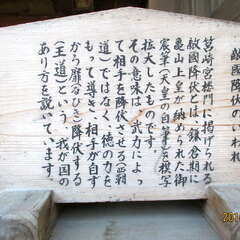 敵國降伏のいわれ
筥崎宮楼門に掲げられる
敵國降伏とは、鎌倉期に
亀山上皇が納められた御
宸筆(天皇の自筆)を模写
拡大したものです。
その意味は、武力によっ
て相手を降伏させる(覇
道)ではなく、徳の力を
もって導き、相手が自す
から靡(なび)き降伏する
(王道)という、我が国の
あり方を説いています。